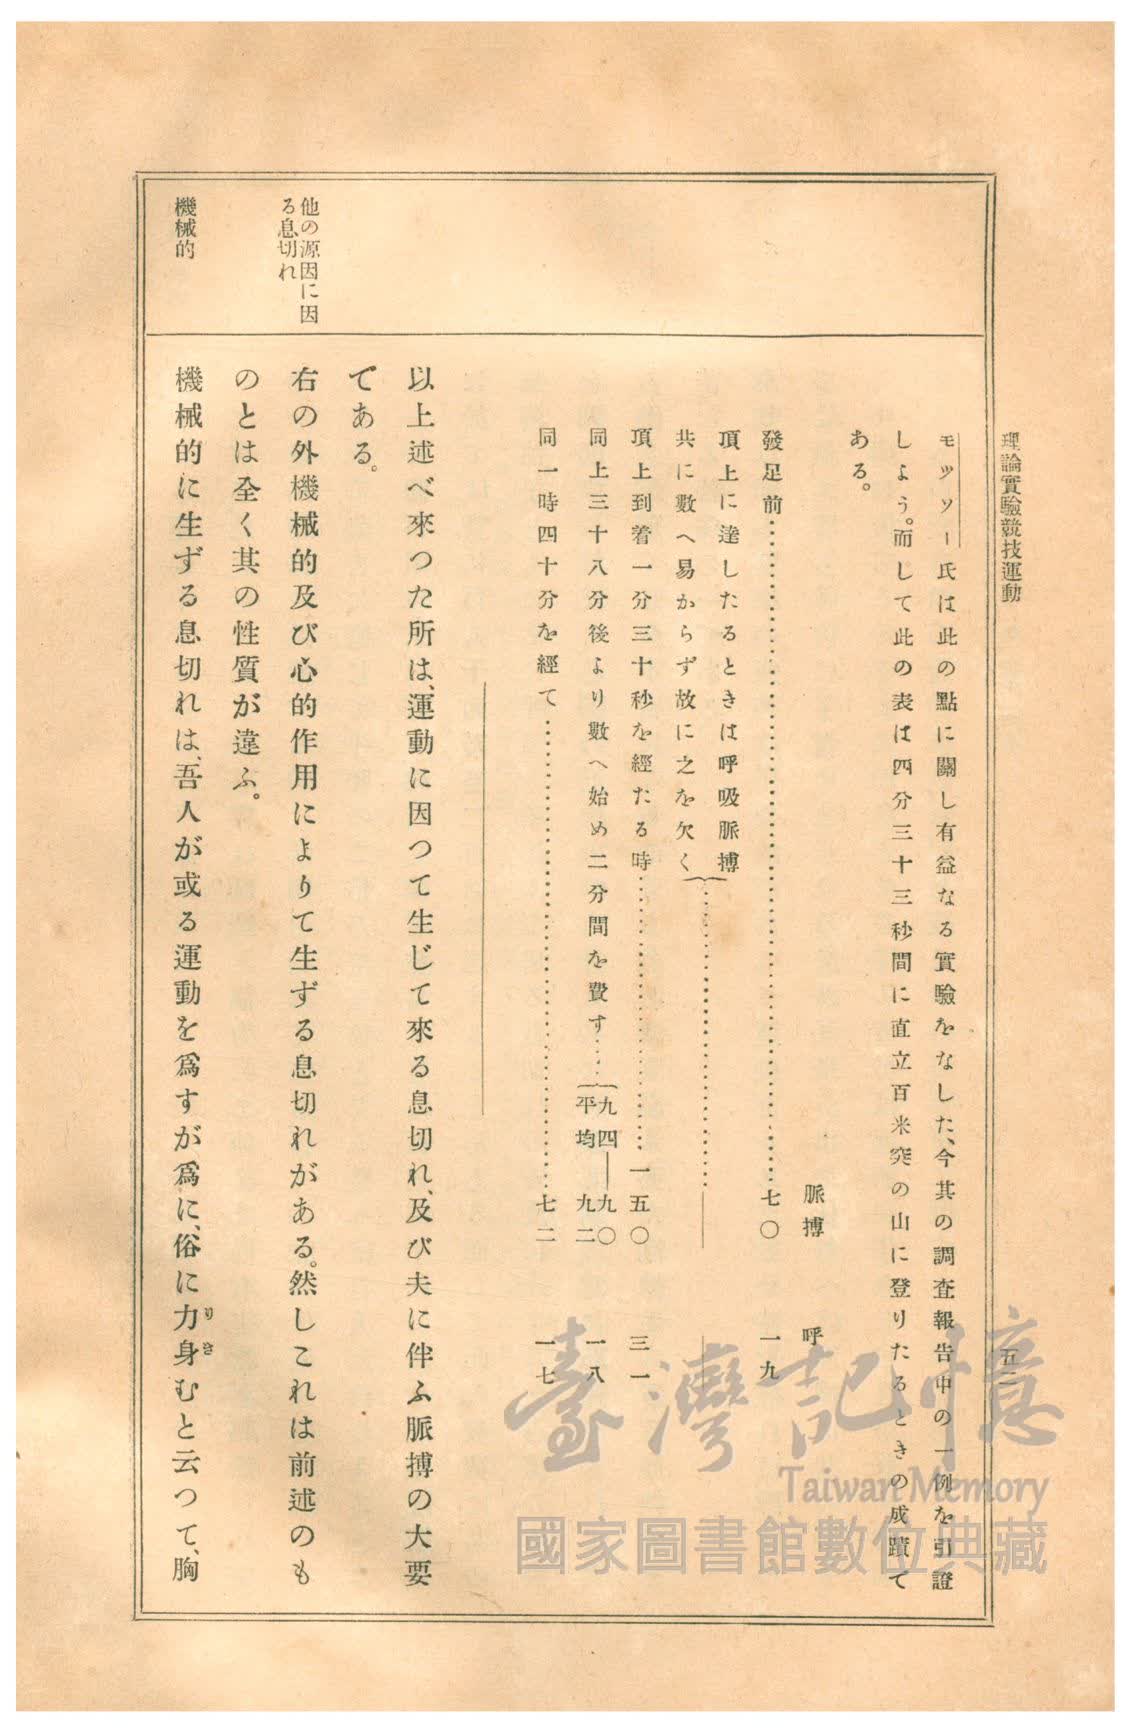 理論實驗競技運動
五二
モツソー氏は此の點に關し有益なる實驗をなした、今其の調査報告中の一例を引證
しよう。而して此の表は四分三十三秒間に直立百米突の山に登りたるときの成蹟で
ある。
脈搏 呼
發足前……………………七〇 一九
頂上に達したるときは呼吸脈搏
共に數へ易からず故に之を欠く……………………― ―
頂上到着一分三十秒を經たる時……………………一五〇 三一
同上三十八分後より數へ始め二分間を費す……九四―九〇 一八
平均 九二
同一時四十分を經て……………………七二 一七
以上述べ來つた所は、運動に因つて生じて來る息切れ、及び夫に伴ふ脈搏の大要
である。
他の源因に因
る息切れ
右の外機械的及び心的作用によりて生ずる息切れがある。然しこれは前述のも
のとは全く其の性質が違ふ。
機械的
機械的に生ずる息切れは、吾人が或る運動を爲すが爲に、俗に力身むと云つて、胸
りき
臺灣記憶
Taiwan Memory
國家圖書館數位典藏